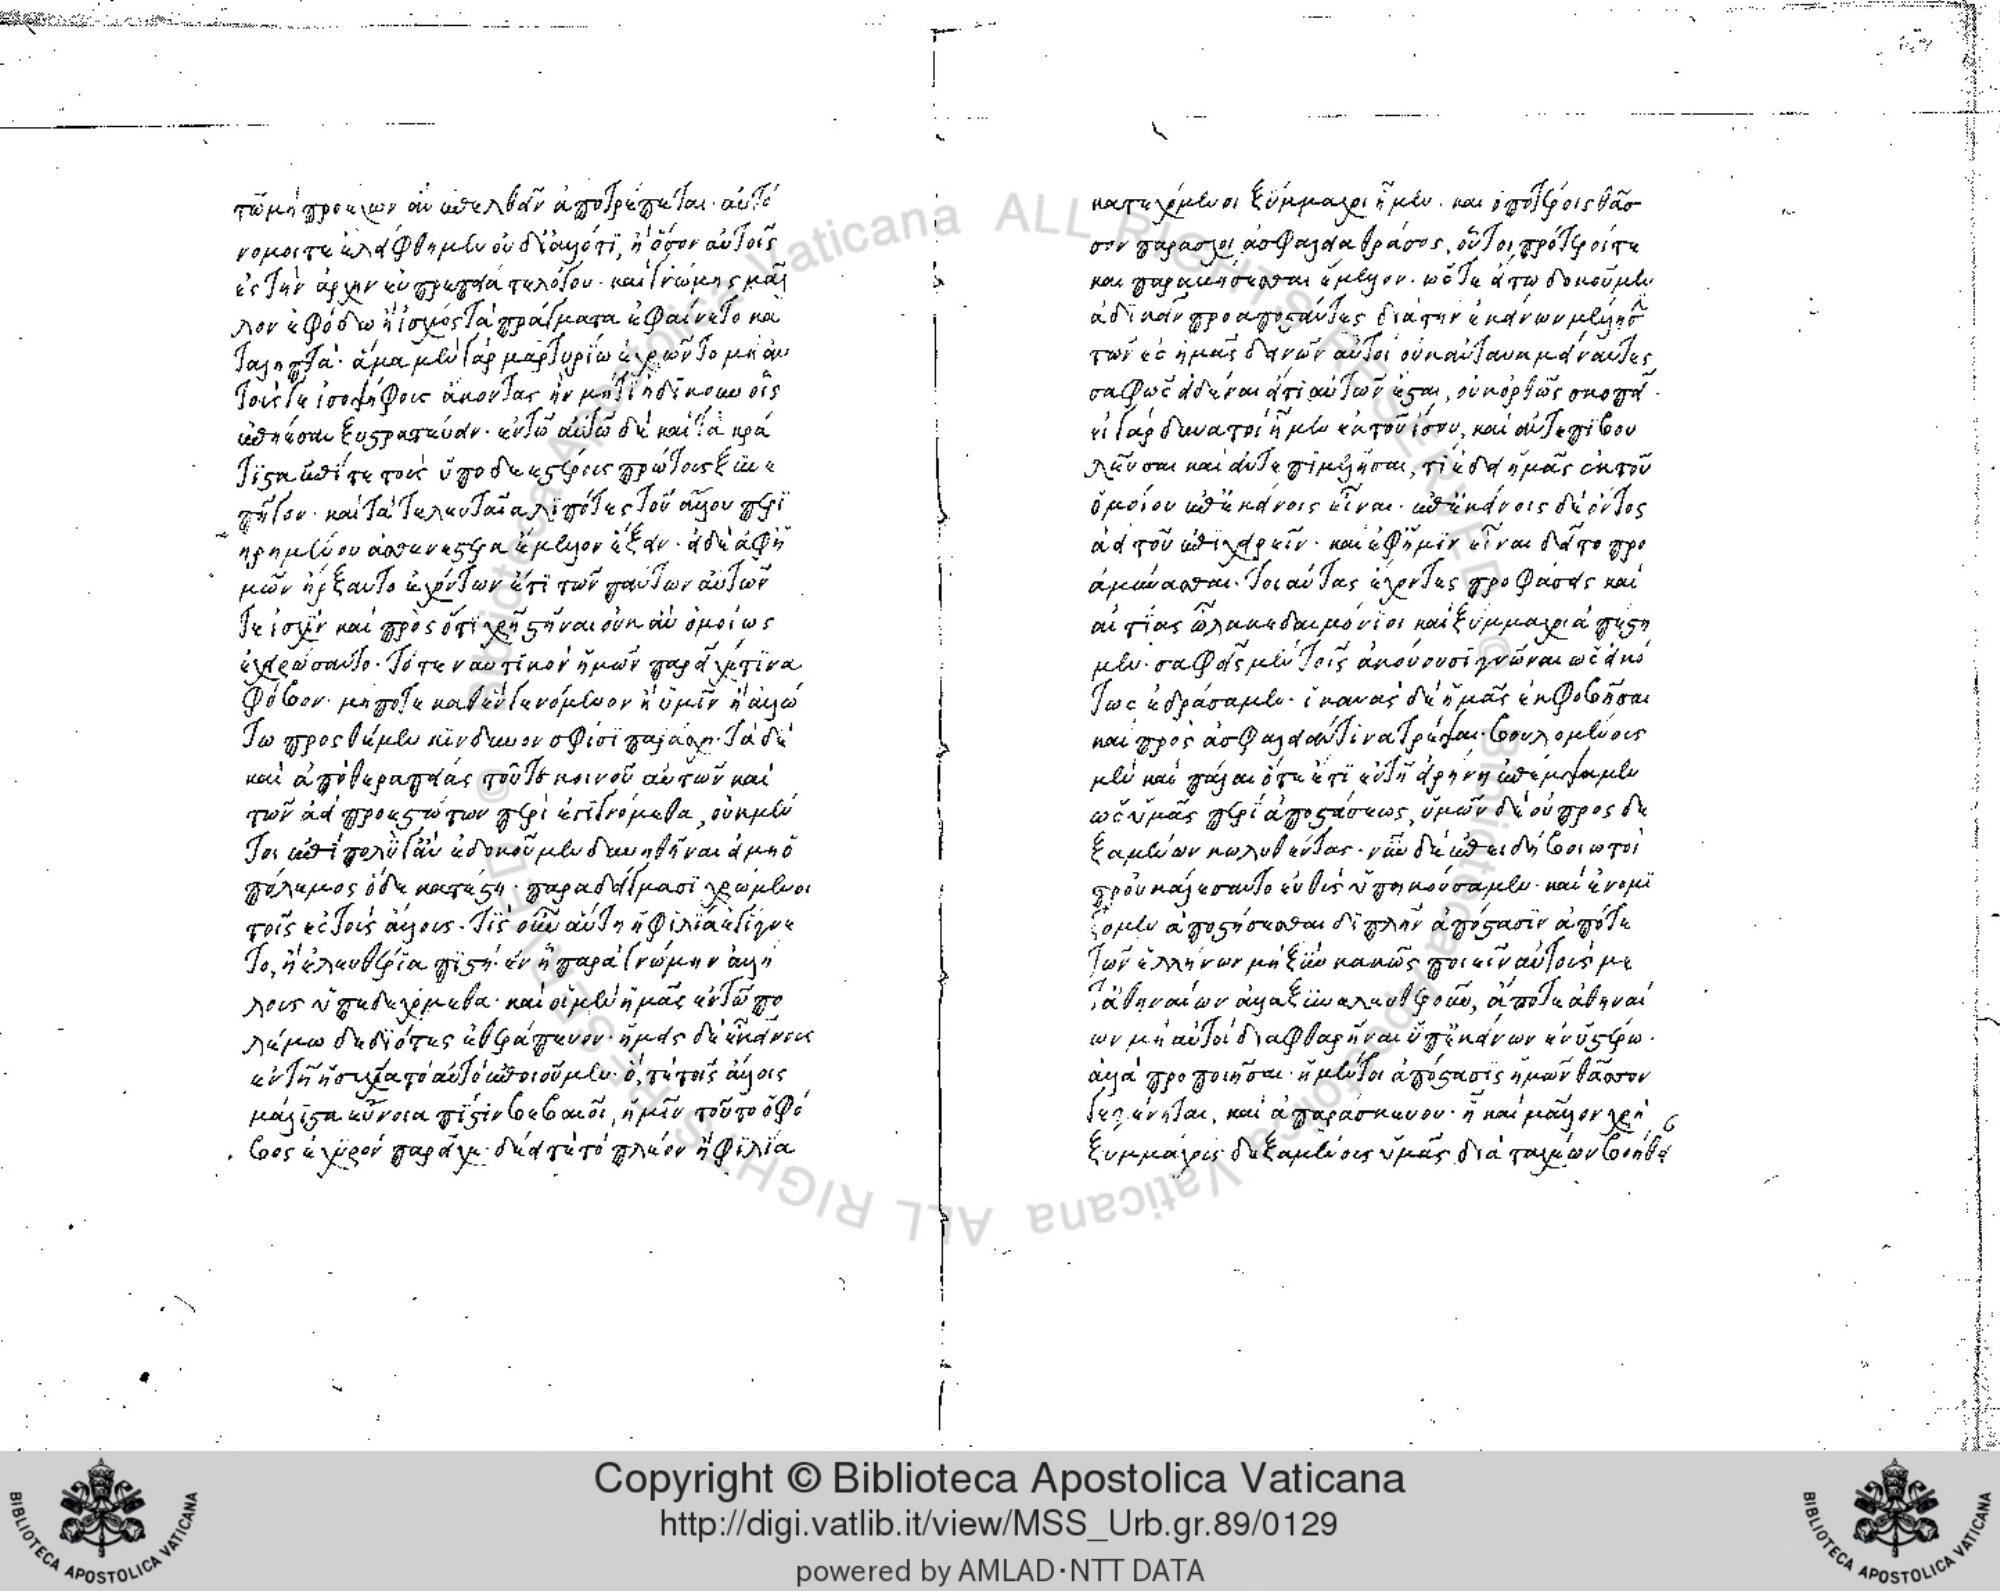 τῷ μὴ προέχων ἂν ἐπελθεῖν ἀποτρέπεται. αὐτό
νομοί τε ἐλείφθημεν οὐ δι' ἄλλό τι, ἢ ὅσον αὐτοῖς
ἐς τὴν ἀρχὴν εὐπρεπείᾳ τε λόγου. καὶ γνώμης μᾶλ
λον ἐφόδω ἢ ἰσχύος τὰ πράγματα ἐφαίνετο κα
ταληπτά. ἅμα μὲν γὰρ μαρτυρίω ἐχρῶντο μὴ ἂν
τούς τε ἰσοψήφους ἄκοντας ἢν μή τι ἠδίκουν οἷς
ἐπῄεσαν ξυστρατεύειν. ἐν τῶ αὐτῶ δὲ καὶ τὰ κρά
τιστα ἐπί τε τοὺς ὑποδεεστέρους πρώτους ξυνε
πῆγον. καὶ τὰ τελευταῖα λιπόντες τοῦ ἄλλου περι
ηρημένου ἀσθενέστερα ἔμελλον ἕξειν. εἰ δὲ ἀφ' ἡ
μῶν ἤρξαντο ἐχόντων ἔτι τῶν πάντων αὐτῶν
τε ἰσχὺν καὶ πρὸς ὅ τι χρῆ στῆναι οὐκ ἂν ὁμοίως
ἐχειρώσαντο. τό τε ναυτικὸν ἡμῶν παρεῖχέ τινα
φόβον. μή ποτε καθ' ἓν γενόμενον ἢ ὑμῖν ἢ ἄλλω
τω προσθέμενον κίνδυνον σφίσι παράσχη. τὰ δὲ
καὶ ἀπὸ θεραπείας τοῦ τε κοινοῦ αὐτῶν καὶ
τῶν ἀεὶ προεστώτων περιεγιγνόμεθα, οὐ μέν
τοι ἐπὶ πολύ γ' ἂν ἐδοκοῦμεν δυνηθῆναι εἰ μὴ ὁ
πόλεμος ὅδε κατέστη. παραδείγμασι χρώμενοι
τοῖς ἐς τοὺς ἄλλους. τίς οὖν αὕτη ἡ φιλία ἐγίγνε
το, ἢ ἐλευθερία πιστή. ἐν ἧ παρὰ γνώμην ἀλλή
λους ὑπεδεχόμεθα. καὶ οἱ μὲν ἡμᾶς ἐν τῶ πο
λέμω δεδιότες ἐθεράπευον. ἡμεῖς δὲ ἐκείνους
ἐν τῆ ἡσυχία τὸ αὐτὸ ἐποιοῦμεν. ὅ, τε τοῖς ἄλλοις
μάλιστα εὔνοια πίστιν βεβαιοῖ, ἡμῖν τοῦτο ὁ φό
βος ἐχυρὸν παρεῖχε. δέει τε τὸ πλέον ἢ φιλία
κατεχόμενοι ξύμμαχοι ἦμεν. καὶ ὁποτέροις θᾶσ
σον παράσχοι ἀσφάλεια θράσος, οὗτοι πρότεροί τε
καὶ παραβήσεσθαι ἔμελλον. ὥστε εἴ τω δοκοῦμεν
ἀδικεῖν προαποστάντες διὰ τὴν ἐκείνων μέλλησιν
τῶν ἐς ἡμᾶς δεινῶν αὐτοὶ οὐκ ἀνταναμείναντες
σαφῶς εἰδέναι εἴ τι αὐτῶν ἔσται, οὐκ ὀρθῶς σκοπεῖ.
εἰ γὰρ δυνατοὶ ἦμεν ἐκ τοῦ ἴσου, καὶ ἀντεπιβου
λεῦσαι καὶ ἀντεπιμελλῆσαι, τί ἔδει ἡμᾶς ἐκ τοῦ
ὁμοίου ἐπ' ἐκείνοις εἶναι. ἐπ' ἐκείνοις δὲ ὄντος
ἀεὶ τοῦ ἐπιχειρεῖν. καὶ ἐφ' ἡμῖν εἶναι δεῖ τὸ προ
αμύνασθαι. τοιαύτας ἔχοντες προφάσεις καὶ
αἰτίας ὦ λακεδαιμόνιοι καὶ ξύμμαχοι ἀπέστη
μεν. σαφεῖς μὲν τοῖς ἀκούουσι γνῶναι ὡς εἰκό
τως ἐδράσαμεν. ἱκανὰς δὲ ἡμᾶς ἐκφοβῆσαι
καὶ πρὸς ἀσφάλειάν τινα τρέψαι. βουλομένους
μὲν καὶ πάλαι ὅτε ἔτι ἐν τῆ εἰρήνη ἐπέμψαμεν
ὡς ὑμᾶς περὶ ἀποστάσεως, ὑμῶν δὲ οὐ προσδε
ξαμένων κωλυθέντας. νῦν δὲ ἐπειδὴ βοιωτοὶ
προὐκαλέσαντο εὐθὺς ὑπηκούσαμεν. καὶ ἐνομί
ζομεν ἀποστήσεσθαι διπλῆν ἀπόστασιν ἀπό τε
τῶν ἑλλήνων μὴ ξὺν κακῶς ποιεῖν αὐτοὺς με
τ' ἀθηναίων ἀλλὰ ξυνελευθεροῦν, ἀπό τε ἀθηναί
ων μὴ αὐτοὶ διαφθαρῆναι ὑπ' ἐκείνων ἐν ὑστέρω.
ἀλλὰ προποιῆσαι. ἡ μέντοι ἀπόστασις ἡμῶν θᾶσσον
γεγένηται, καὶ ἀπαράσκευος. ἧ καὶ μᾶλλον χρὴ
ξυμμάχους δεξαμένους ὑμᾶς διὰ ταχέων βοήθει
Copyright © Biblioteca Apostolica Vaticana
http://digi.vatlib.it/view/MSS_Urb.gr.89/0129
powered by AMLAD·NTT DATA
BIBLIOTECA APOSTOLICA VATICANA
BIBLIOTECA APOSTOLICA VATICANA